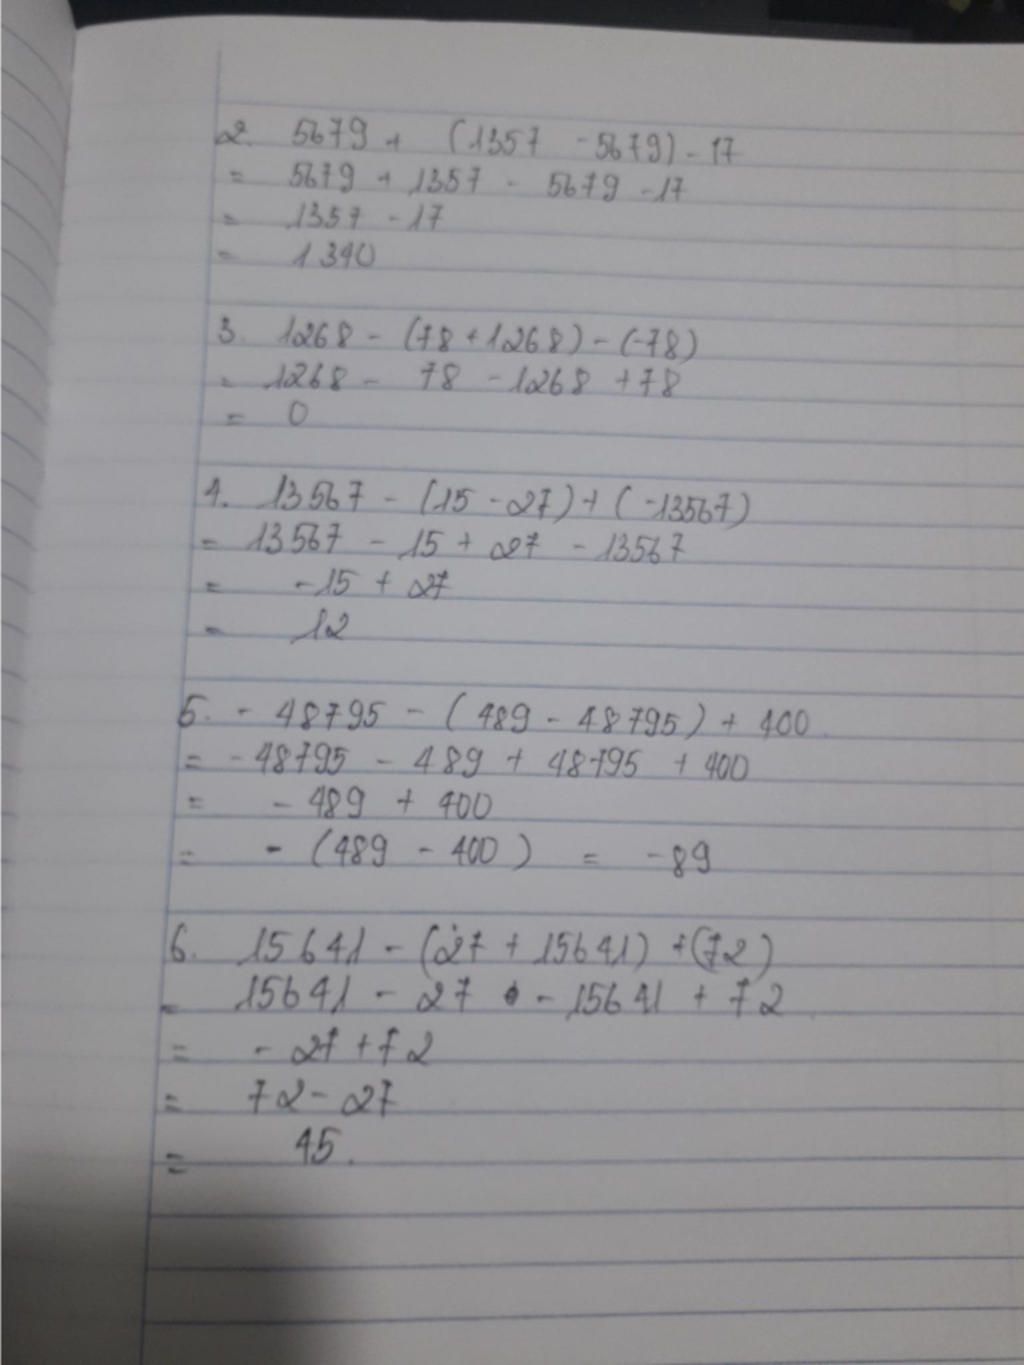 2. 5679 + (1357 - 5679) - 17
= 5679 + 1357 - 5679 - 17
= 1357 - 17
= 1340
3. 1268 - (78 + 1268) - (-78)
= 1268 - 78 - 1268 + 78
= 0
4. 13567 - (15 - 27) + (-13567)
= 13567 - 15 + 27 - 13567
= -15 + 27
= 12
5. - 48795 - (489 - 48795) + 400
= - 48795 - 489 + 48795 + 400
= - 489 + 400
= - (489 - 400) = -89
6. 15641 - (27 + 15641) + (72)
= 15641 - 27 - 15641 + 72
= - 27 + 72
= 72 - 27
= 45.